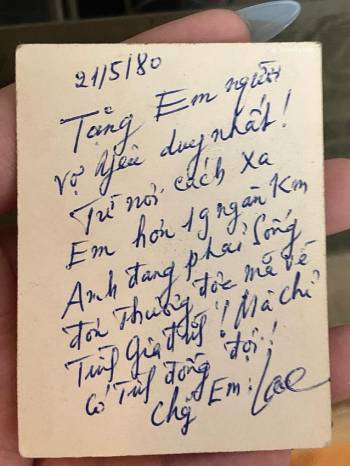 21/5/80
Tặng Em người
vợ yêu duy nhất!
Từ nơi cách xa
Em hơn 19 ngàn Km
Anh đang phải sống
đơn thương độc mã về
Tình Gia đình! Mà chỉ
có Tình đồng đội!
Chg Em: Lac